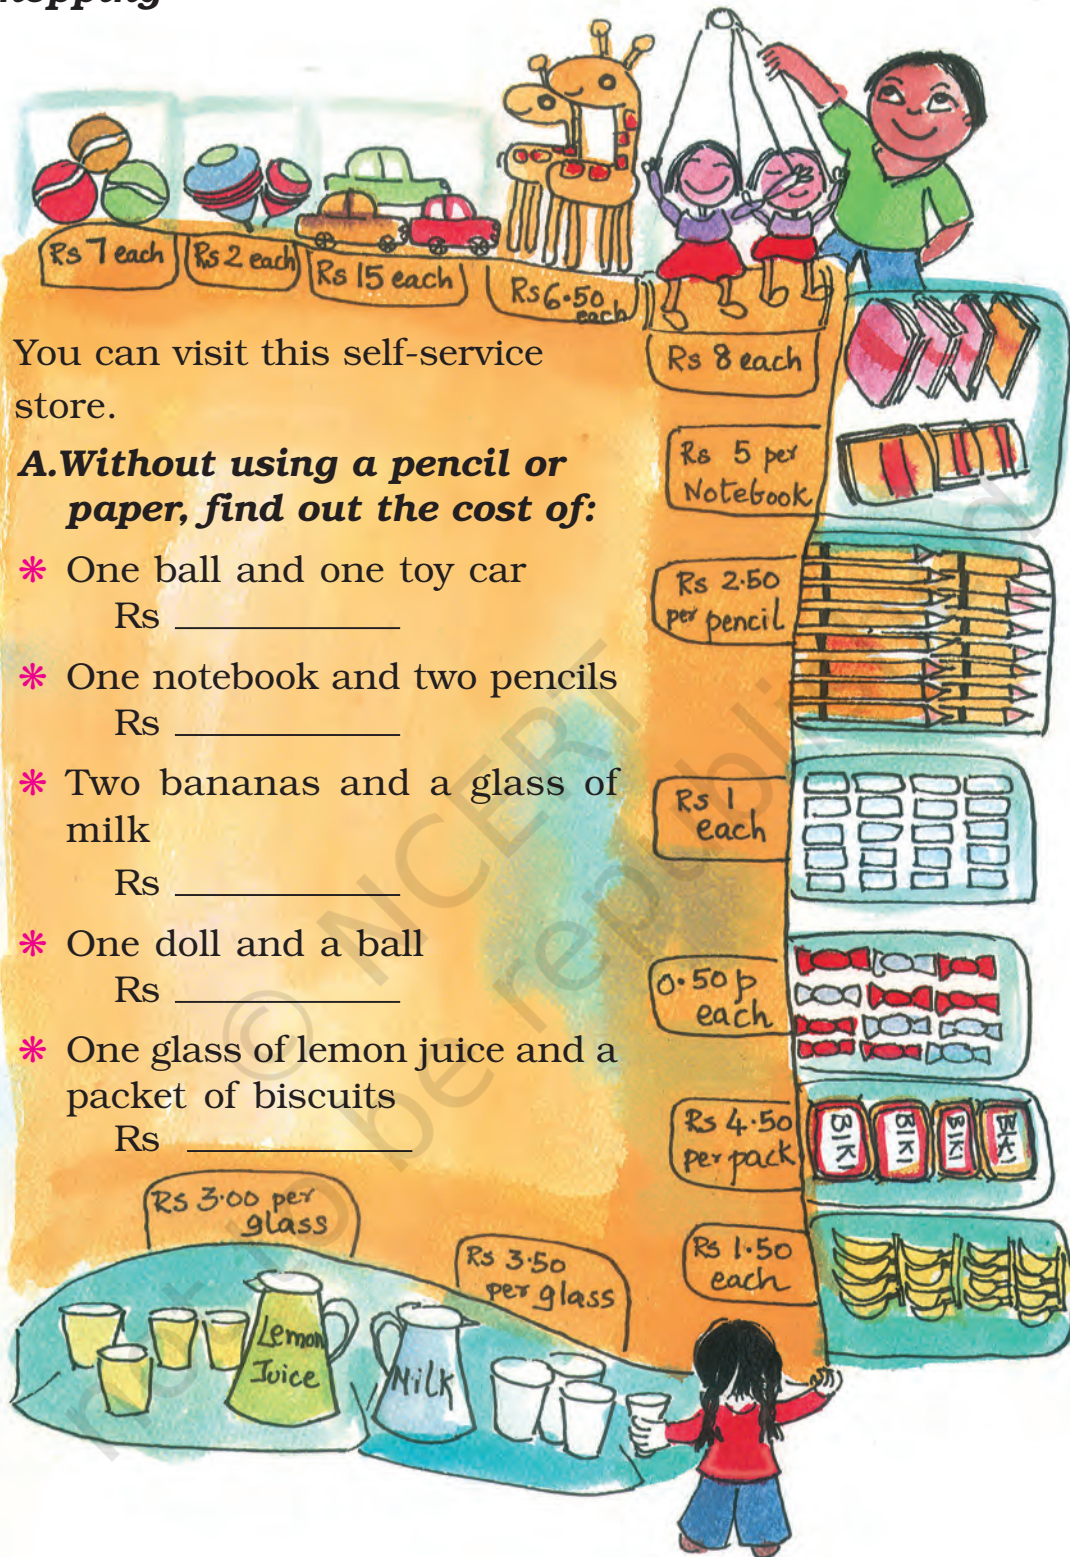 Rs 7 each
Rs 2 each
Rs 15 each
Rs 6.50
each
Rs 8 each
You can visit this self-service
store.
A.Without using a pencil or
paper, find out the cost of:
❋ One ball and one toy car
Rs ____________
❋ One notebook and two pencils
Rs ____________
❋ Two bananas and a glass of
milk
Rs ____________
❋ One doll and a ball
Rs ____________
❋ One glass of lemon juice and a
packet of biscuits
Rs ____________
Rs 5 per
Notebook
Rs 2.50
per pencil
Rs 1
each
0.50 p
each
Rs 4.50
per pack
BIKI
BIKI
BIKI
BIKI
Rs 1.50
each
Rs 3.00 per
glass
Rs 3.50
per glass
Lemon
Juice
Milk
© NCERT
not to be republished